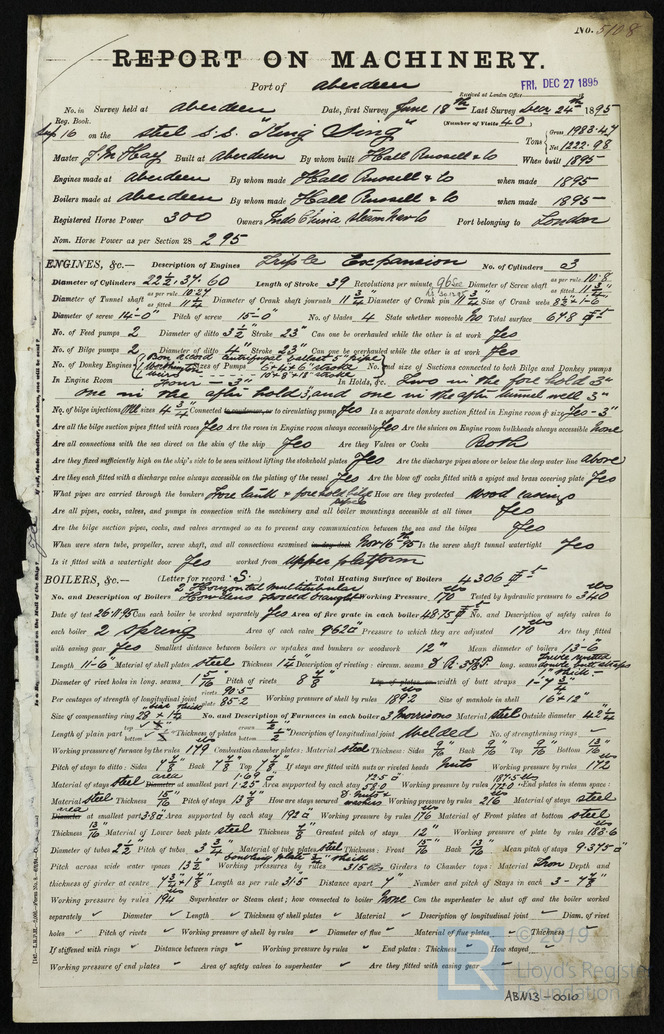 No. 5108
REPORT ON MACHINERY.
Port of Aberdeen
Received at London Office FRI, DEC 27 1895
No. in Survey held at Aberdeen Date, first Survey June 18th Last Survey Dec 24th 1895
Reg. Book. (Number of Visits 40)
Sup 16 on the steel s.s. "King Sing" Tons Gross 1983.47 Net 1222.98
Master J. M. Hay Built at Aberdeen By whom built Hall Russell & Co When built 1895
Engines made at Aberdeen By whom made Hall Russell & Co when made 1895
Boilers made at Aberdeen By whom made Hall Russell & Co when made 1895
Registered Horse Power 300 Owners Indo China Steam Nav Co Port belonging to London
Nom. Horse Power as per Section 28 295
ENGINES, &c.— Description of Engines Triple Expansion No. of Cylinders 3
Diameter of Cylinders 22½, 37, 60 Length of Stroke 39 Revolutions per minute Diameter of Screw shaft as per rule 10.8 as fitted
Diameter of Tunnel shaft as per rule 10.27 as fitted 11¼ Diameter of Crank shaft journals 11¾ Diameter of Crank pin 11¾ Size of Crank webs
Diameter of screw 14-0" Pitch of screw 15-0" No. of blades 4 State whether moveable No Total surface 67.8
No. of Feed pumps 2 Diameter of ditto 3½" Stroke 23" Can one be overhauled while the other is at work Yes
No. of Bilge pumps 2 Diameter of ditto 4" Stroke 23" Can one be overhauled while the other is at work Yes
No. of Donkey Engines Sizes of Pumps No. and size of Suctions connected to both Bilge and Donkey pumps
In Engine Room Four – 3" In Holds, &c. Two in the fore hold 3"
one in the after hold 3", and one in the after tunnel well 3"
No. of bilge injections sizes 4¾ Connected to condenser, or to circulating pump Yes Is a separate donkey suction fitted in Engine room & size Yes – 3"
Are all the bilge suction pipes fitted with roses Yes Are the roses in Engine room always accessible Yes Are the sluices on Engine room bulkheads always accessible None
Are all connections with the sea direct on the skin of the ship Yes Are they Valves or Cocks Both
Are they fixed sufficiently high on the ship's side to be seen without lifting the stokehold plates Yes Are the discharge pipes above or below the deep water line above
Are they each fitted with a discharge valve always accessible on the plating of the vessel Yes Are the blow off cocks fitted with a spigot and brass covering plate Yes
What pipes are carried through the bunkers Fore tank & fore hold bilge pipes How are they protected Wood casings
Are all pipes, cocks, valves, and pumps in connection with the machinery and all boiler mountings accessible at all times Yes
Are the bilge suction pipes, cocks, and valves arranged so as to prevent any communication between the sea and the bilges Yes
When were stern tube, propeller, screw shaft, and all connections examined in dry dock Nov 16th 95 Is the screw shaft tunnel watertight Yes
Is it fitted with a watertight door Yes worked from upper platform
BOILERS, &c.— (Letter for record S.) Total Heating Surface of Boilers 4306
No. and Description of Boilers 2 Horizontal multitubular Howdens forced draught Working Pressure 170 lbs Tested by hydraulic pressure to 340 lbs
Date of test 26.11.95 Can each boiler be worked separately Yes Area of fire grate in each boiler 48.75 No. and Description of safety valves to
each boiler 2 Spring Area of each valve 9.62 Pressure to which they are adjusted 170 lbs Are they fitted
with easing gear Yes Smallest distance between boilers or uptakes and bunkers or woodwork 12" Mean diameter of boilers 13-6
Length 11-6 Material of shell plates steel Thickness Description of riveting: circum. seams long. seams
Diameter of rivet holes in long. seams 1 5/16 Pitch of rivets 8⅞ Lap of plates or width of butt straps
Per centages of strength of longitudinal joint rivets 90.5 plate 85.2 Working pressure of shell by rules 189.2 lbs Size of manhole in shell 16 × 12"
Size of compensating ring No. and Description of Furnaces in each boiler 3 Morrisons Material steel Outside diameter 42¼
Length of plain part top bottom Thickness of plates crown bottom ½" Description of longitudinal joint Welded No. of strengthening rings
Working pressure of furnace by the rules 179 Combustion chamber plates: Material steel Thickness: Sides 9/16 Back 9/16 Top 9/16 Bottom
Pitch of stays to ditto: Sides 7½ Back 7½ Top 7½ If stays are fitted with nuts or riveted heads Nuts Working pressure by rules 172
Material of stays steel Diameter at smallest part Area supported by each stay Working pressure by rules End plates in steam space:
Material steel Thickness 15/16 Pitch of stays How are stays secured D. nuts & washers Working pressure by rules 216 Material of stays steel
Diameter at smallest part Area supported by each stay 192 Working pressure by rules 176 Material of Front plates at bottom steel
Thickness 13/16 Material of Lower back plate steel Thickness ⅞ Greatest pitch of stays 12" Working pressure of plate by rules 183.6
Diameter of tubes 2½ Pitch of tubes 3¾ Material of tube plates steel Thickness: Front 15/16 Back 13/16 Mean pitch of stays 9.375
Pitch across wide water spaces 13½" Working pressures by rules 315 lbs Girders to Chamber tops: Material Iron Depth and
thickness of girder at centre Length as per rule 31.5 Distance apart 7" Number and pitch of Stays in each 3 – 7⅞"
Working pressure by rules 194 Superheater or Steam chest; how connected to boiler None Can the superheater be shut off and the boiler worked
separately Diameter Length Thickness of shell plates Material Description of longitudinal joint Diam. of rivet
holes Pitch of rivets Working pressure of shell by rules Diameter of flue Material of flue plates Thickness
If stiffened with rings Distance between rings Working pressure by rules End plates: Thickness How stayed
Working pressure of end plates Area of safety valves to superheater Are they fitted with easing gear
© 2019
Lloyd's Register
Foundation
ABN13-0010